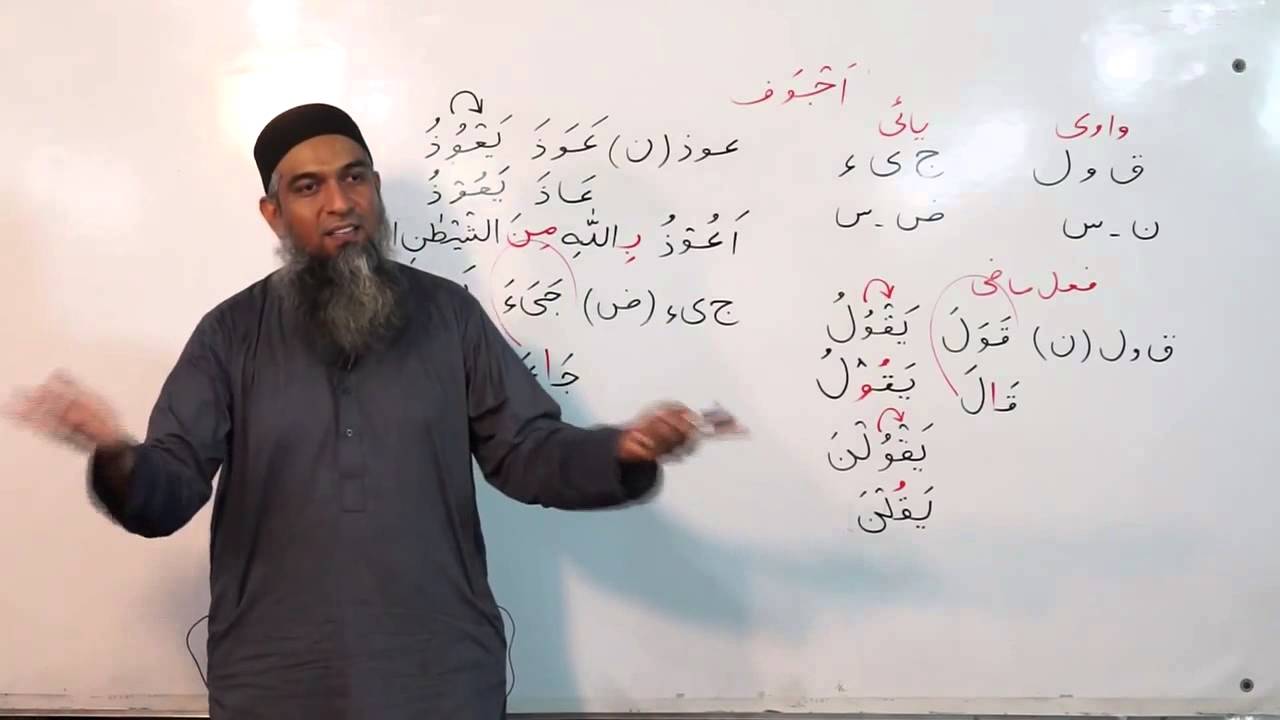 اَجْوَف
واوی یائی
ق و ل ج ی ء
ن ۔ س ض ۔ س
فعل ماضی
ق و ل (ن) قَوَلَ یَقْوُلُ
قَالَ یَقُوْلُ
یَقْوُلْنَ
یَقُلْنَ
عوذ (ن) عَوَذَ یَعْوُذُ
عَاذَ یَعُوْذُ
اَعُوْذُ بِاللّٰهِ مِنَ الشَّیْطٰنِ
ج ی ء (ض) جَیَءَ
جَاءَ